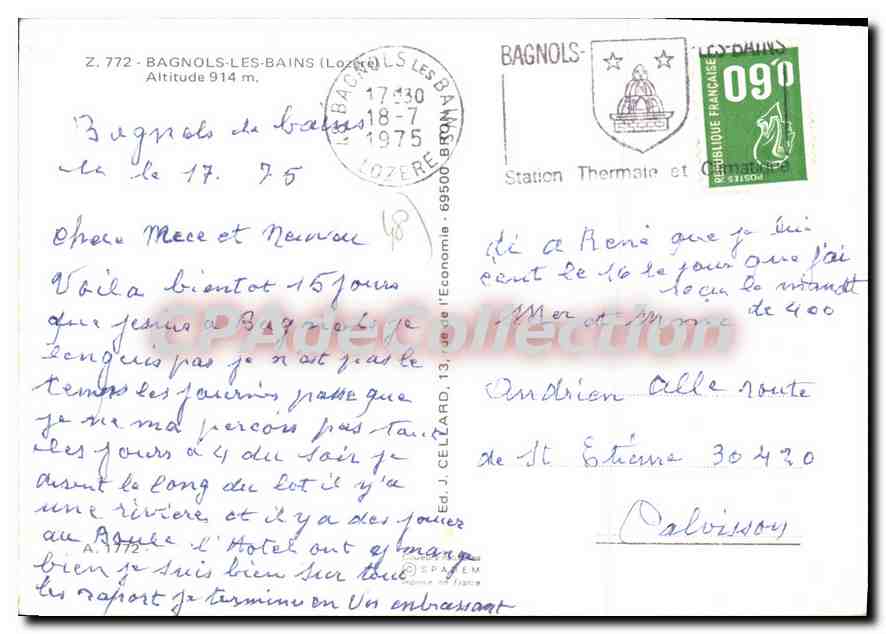 Z. 772 - BAGNOLS-LES-BAINS (Lozère)
Altitude 914 m.
BAGNOLS LES BAINS
17H30
18-7
1975
LOZERE
BAGNOLS-LES-BAINS
Station Thermale et Climatique
REPUBLIQUE FRANÇAISE
0,90
POSTES
48
Bagnols de bains
le 17. 75
chere Mece et
Voila bientot 15 jours
que je suis a Bagnols je
langui pas je n'est pas le
temps les journés passe que
je ne ma perçois pas tout
les jours a 4 du soir je
le long du lot il y'a
une riviere et il y a des joueur
au Boule l'Hotel ont y mange
bien je suis bien sur tout
les raport je termine en Vos enbrassant
di a René que je lui
ecrit le 16 le jour que j'ai
reçu le mandt
de 400
Mer et Mme
Andrien alle route
de St Etienne 30420
Calvisson
Ed. J. CELLARD, 13, rue de l'Economie - 69500 BRON
A. 1772
© SPADEM
Imprimé en France
CPAdeCollection